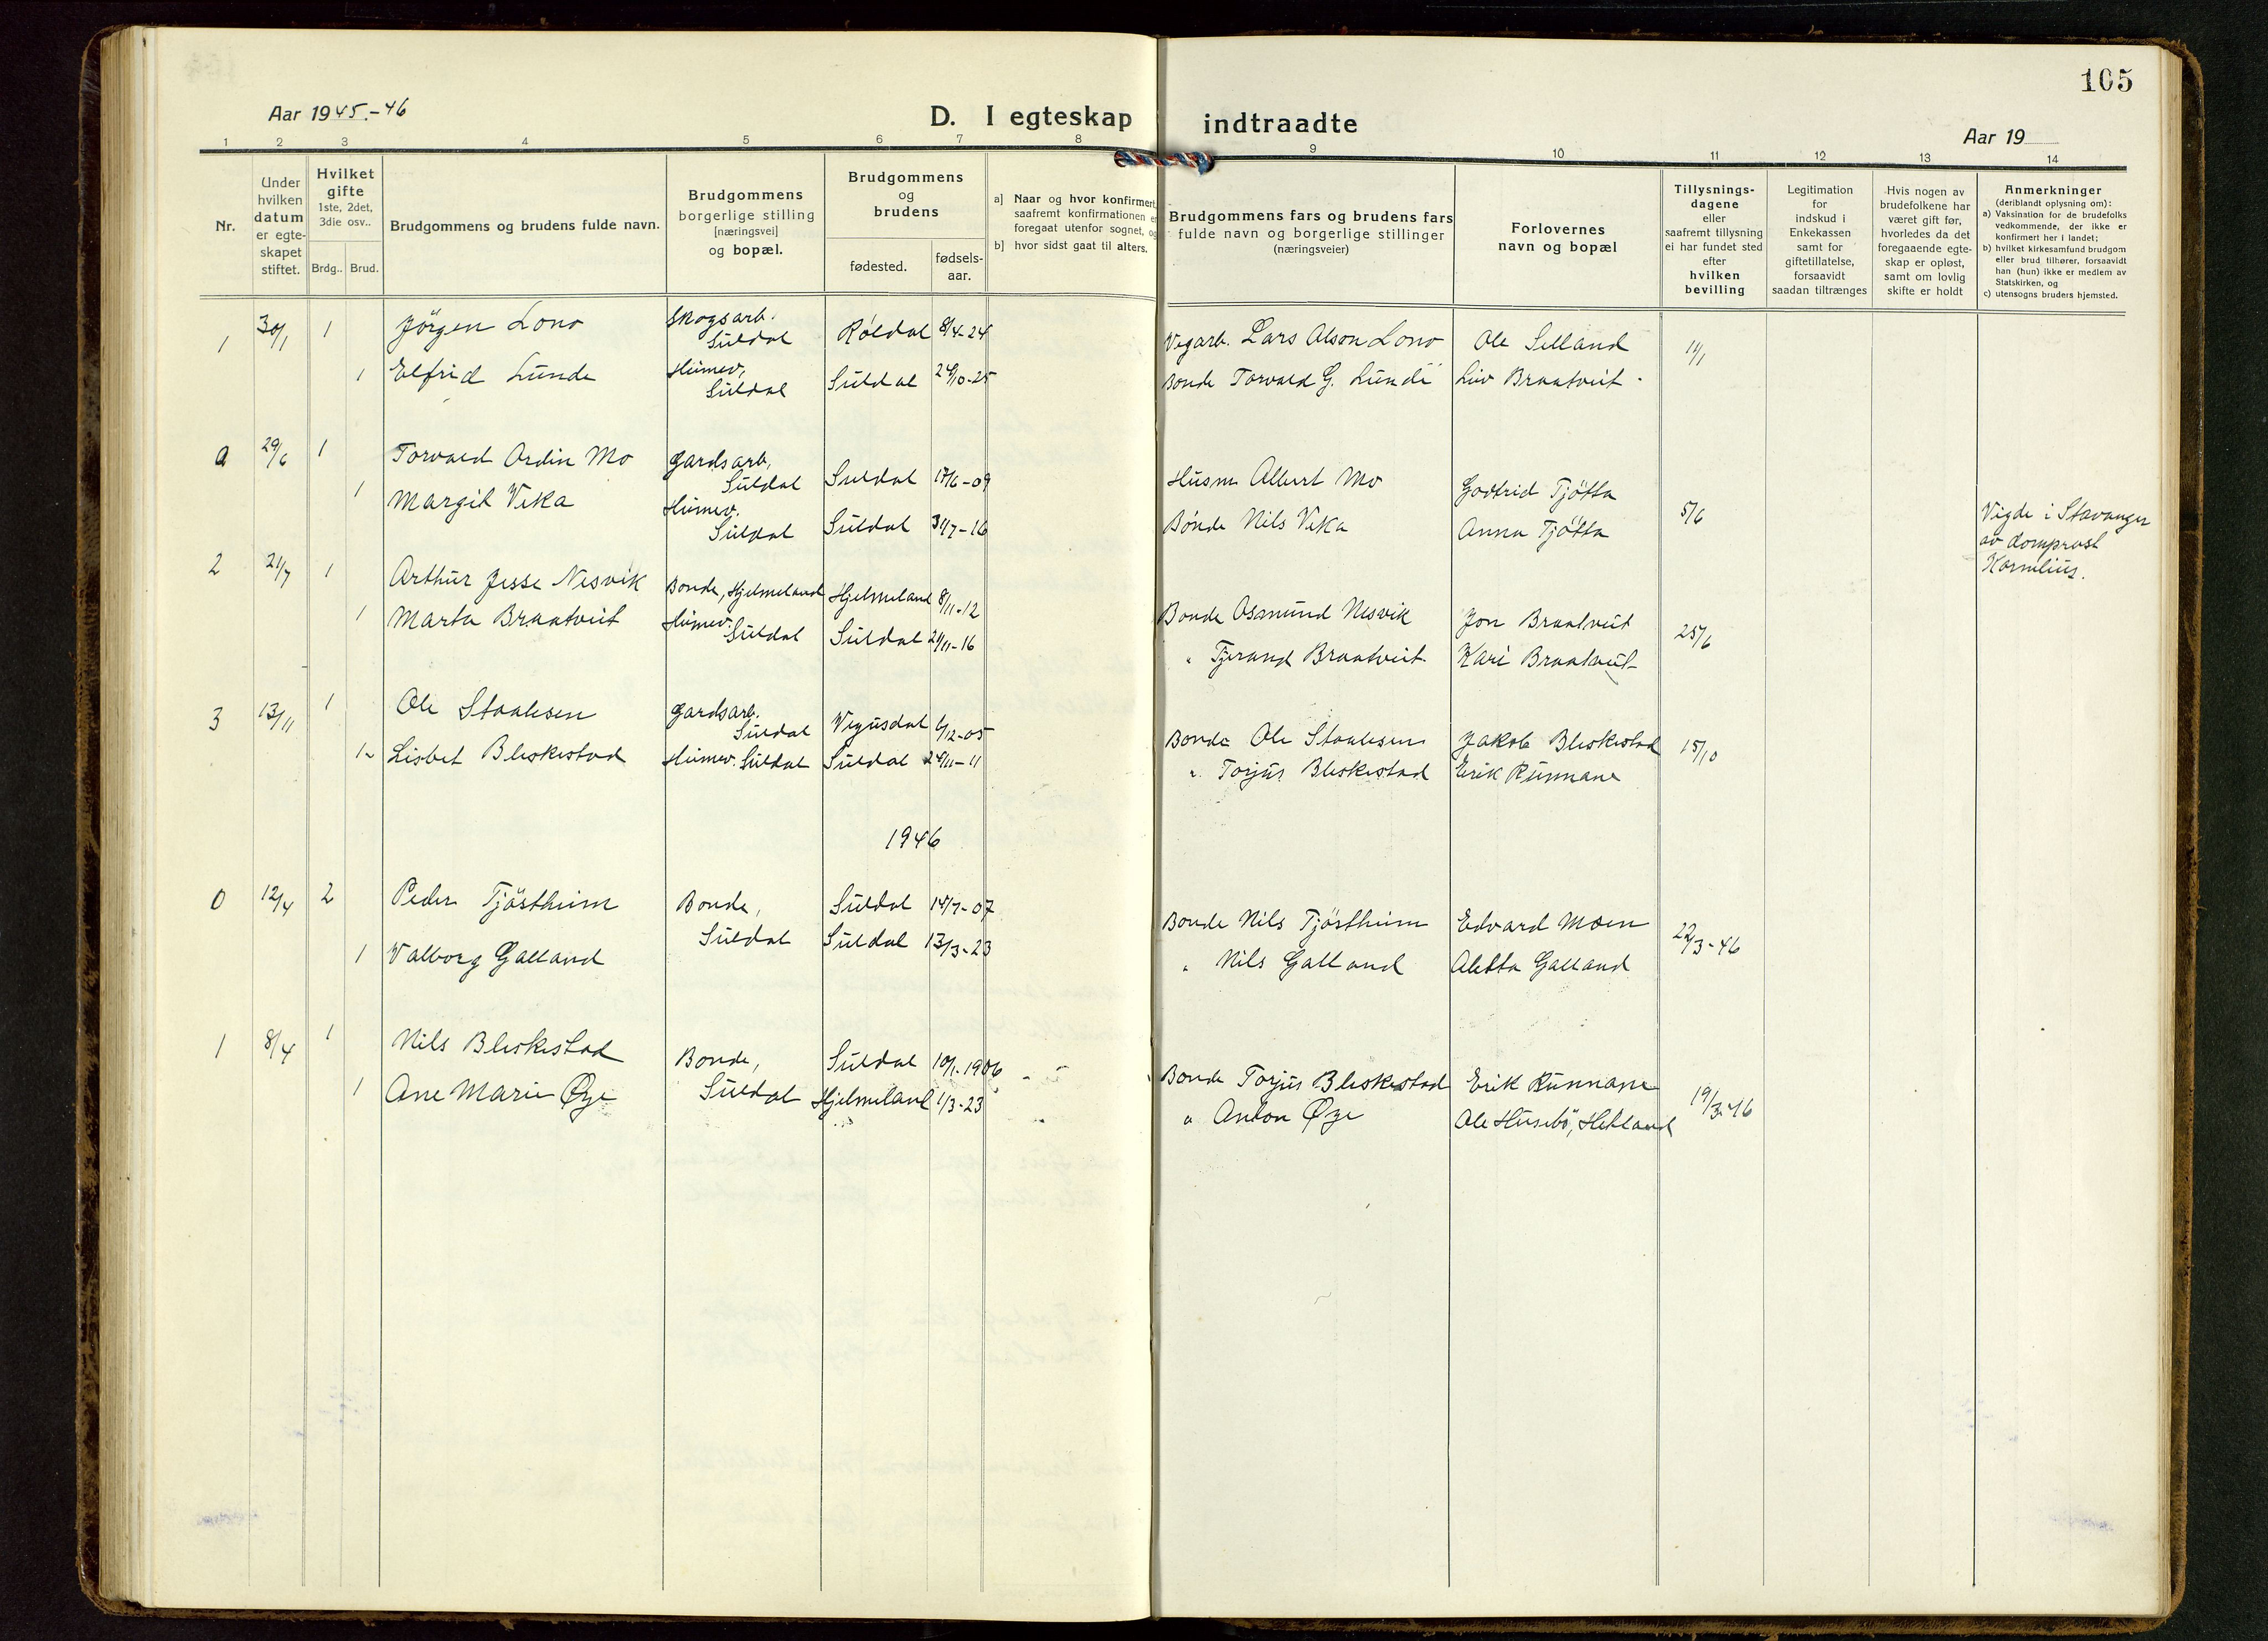 105
Aar 1945.-46
D. I egteskap indtraadte
Aar 19
1 2 3 4 5 6 7 8 9 10 11 12 13 14
Nr.
Under hvilken datum er egte-skapet stiftet.
Hvilket gifte 1ste, 2det, 3die osv..
Brdg.. Brud.
Brudgommens og brudens fulde navn.
Brudgommens borgerlige stilling [næringsvei] og bopæl.
Brudgommens og brudens
fødested.
fødsels-aar.
a] Naar og hvor konfirmert, saafremt konfirmationen er foregaat utenfor sognet, og
b] hvor sidst gaat til alters.
Brudgommens fars og brudens fars fulde navn og borgerlige stillinger (næringsveier)
Forlovernes navn og bopæl
Tillysnings-dagene eller saafremt tillysning ei har fundet sted efter hvilken bevilling
Legitimation for indskud i Enkekassen samt for giftetillatelse, forsaavidt saadan tiltrænges
Hvis nogen av brudefolkene har været gift før, hvorledes da det foregaaende egte-skap er opløst, samt om lovlig skifte er holdt
Anmerkninger (deriblandt oplysning om):
a) Vaksination for de brudefolks vedkommende, der ikke er konfirmert her i landet;
b) hvilket kirkesamfund brudgom eller brud tilhører, forsaavidt han (hun) ikke er medlem av Statskirken, og
c) utensogns bruders hjemsted.
1 30/1 1 Jörgen Lono Skogsarb. Suldal Røldal 8/4-24 Vegarb. Lars Olson Lono Ole Selland 11/1
1 Elfrid Lunde Heimev, Suldal Suldal 24/10-25 Bonde Torvald G. Lunde Liv Braatveit
a 29/6 1 Torvald Ordin Mo gardsarb, Suldal Suldal 17/6-09 Husm Albert Mo Godtrid Tjøtta 5/6
1 Margit Veka Heimev. Suldal Suldal 31/7-16 Bonde Nils Veka Anna Tjøtta
Vigde i Stavanger
av domprost
Kornelius.
2 21/7 1 Arthur Jesse Nesvik Bonde, Hjelmeland Hjelmeland 8/11-12 Bonde Osmund Nesvik Jon Braatveit 25/6
1 Marta Braatveit Heimev. Suldal Suldal 21/11-16 " Tjerand Braatveit Kari Braatveit
3 13/11 1 Ole Staalesen gardsarb. Suldal Vegusdal 6/12-05 Bonde Ole Staalesen Jakob Bleskestad 15/10
1 Lisbet Bleskestad Heimev. Suldal Suldal 24/11-11 " Torjus Bleskestad Erik Runnane
1946
0 12/4 2 Peder Tjöstheim Bonde, Suldal 14/7-07 Bonde Nils Tjöstheim Edvard Moen 22/3-46
1 Valborg Galland Suldal Suldal 13/3-23 " Nils Galland Aletta Galland
1 8/4 1 Nils Bleskestad Bonde, Suldal 10/1-1906 Bonde Torjus Bleskestad Erik Runnane 19/3-46
1 Ane Marie Øye Suldal Hjelmeland 1/3-23 " Anton Øye Ole Husebö, Hetland